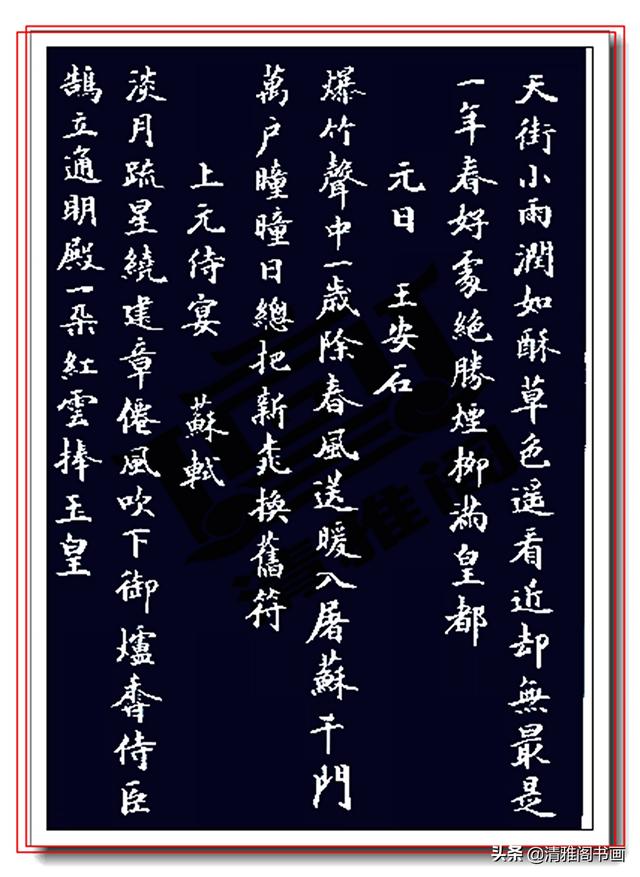 天街小雨潤如酥草色遥看近却無最是
一年春好處絶勝煙柳滿皇都
元日 王安石
爆竹聲中一歲除春風送暖入屠蘇千門
萬户曈曈日總把新桃換舊符
上元侍宴 蘇軾
淡月疏星繞建章僊風吹下御爐香侍臣
鵠立通明殿一朶紅雲捧玉皇
清雅阁
头条 @清雅阁书画